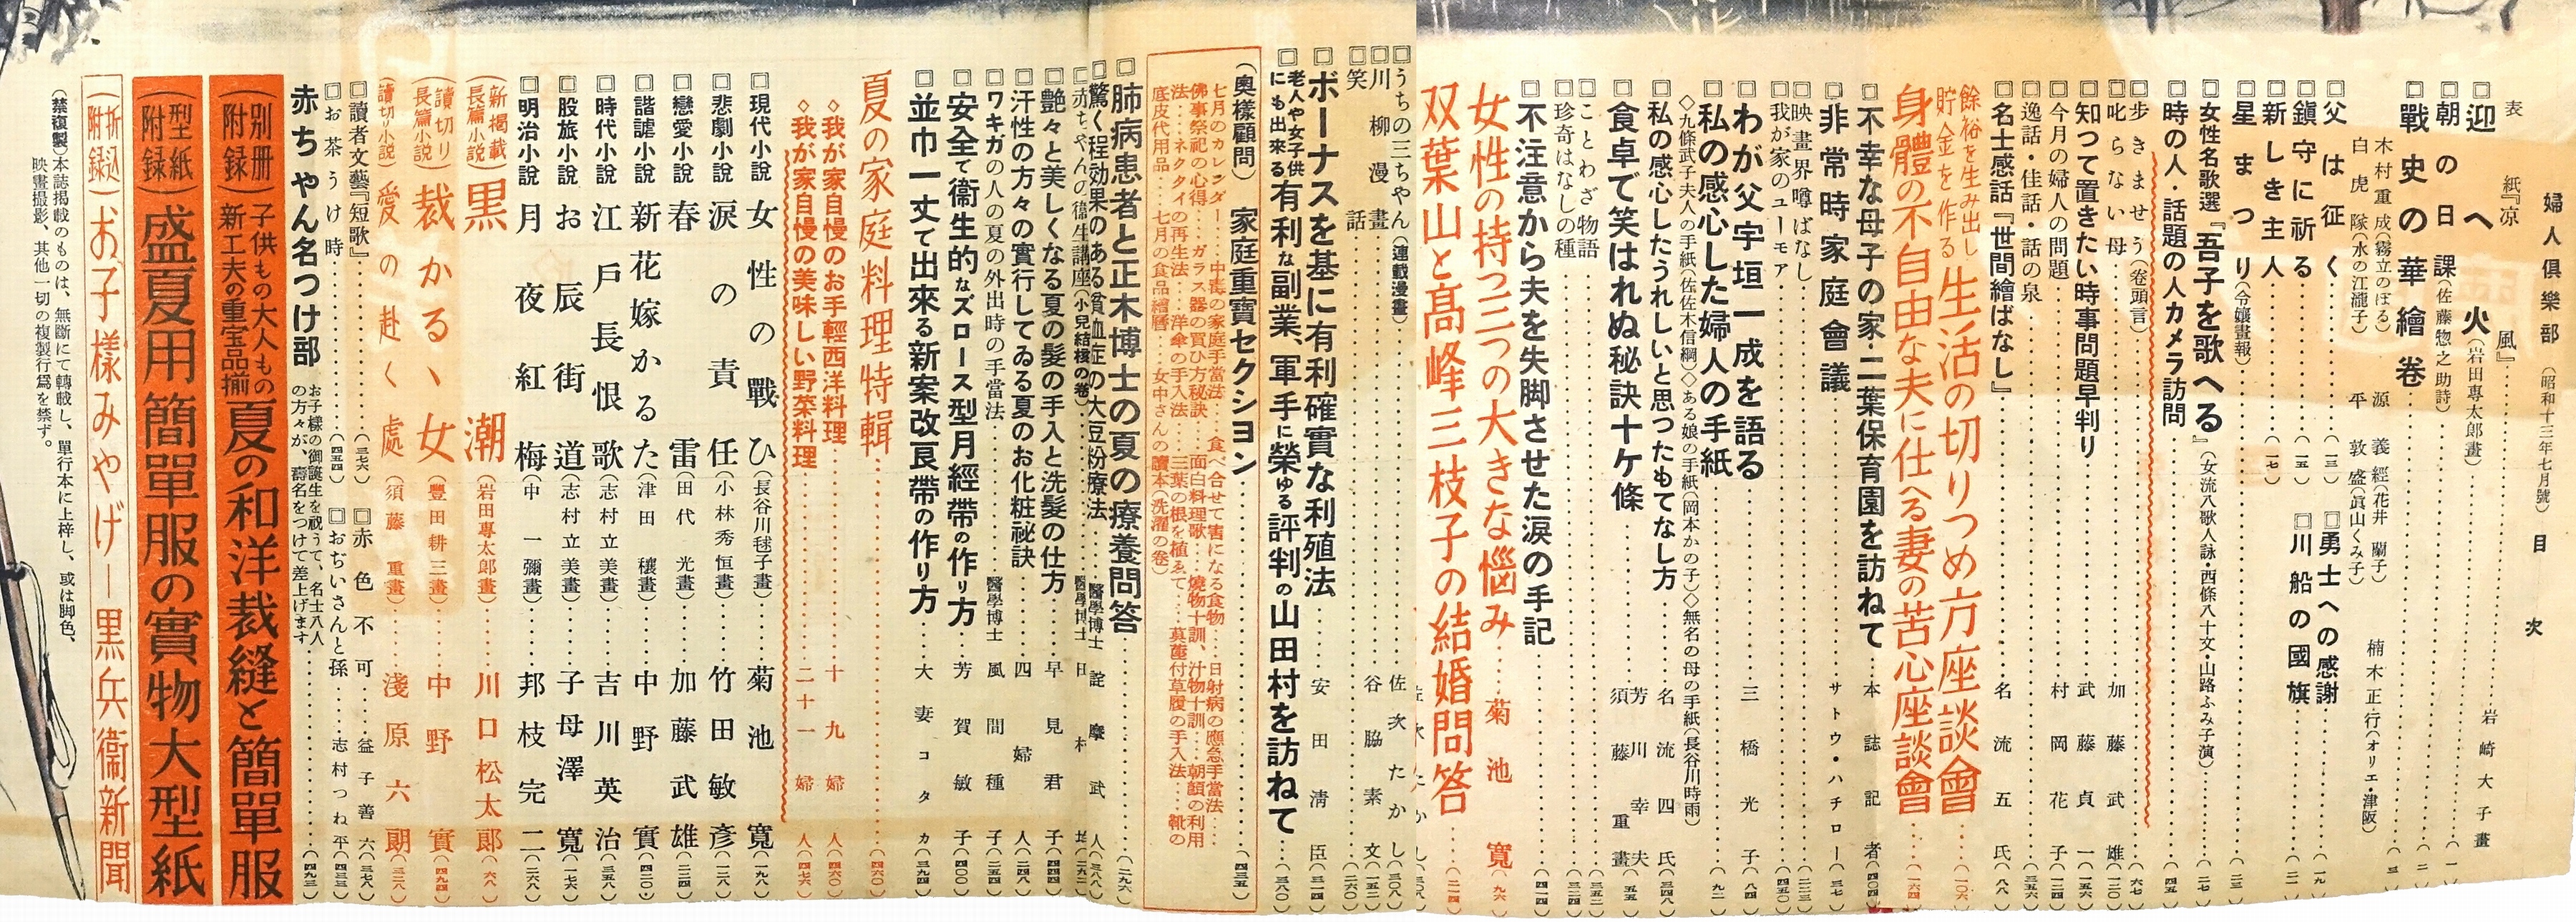 婦人倶樂部 (昭和十三年七月號) 目次
表紙『凉風』 岩崎大子畫
迎へ火 (岩田專太郎畫)
朝の日課 (佐藤惣之助詩) (一)
戰史の華繪卷 (三)
木村重成(霧立のぼる) 源義經(花井蘭子) 楠木正行(オリエ・津阪)
白虎隊(水の江瀧子) 平敦盛(眞山くみ子)
父は征く (一三)
勇士への感謝 (一九)
鎭守に祈る (一五)
川船の國旗 (二一)
新しき主人 (一七)
星まつり (令孃畫報) (二三)
女性名歌選『吾子を歌へる』 (女流八歌人詠・西條八十文・山路ふみ子演) (二七)
時の人・話題の人カメラ訪問 (四五)
歩きませう (卷頭言) (六七)
叱らない母 加藤武雄 (一二〇)
知つて置きたい時事問題早判り 武藤貞一 (一五六)
今月の婦人の問題 村岡花子 (一二四)
逸話・佳話・話の泉 (三五六)
名士感話『世間繪ばなし』 名流五氏 (八八)
餘裕を生み出し貯金を作る 生活の切りつめ方座談會 (一〇六)
身體の不自由な夫に仕へる妻の苦心座談會 (一六四)
不幸な母子の家・二葉保育園を訪ねて 本誌記者 (四〇四)
非常時家庭會議 サトウ・ハチロー (三七)
映畫界噂ばなし (二二三)
我が家のユーモア (四五〇)
わが父宇垣一成を語る 三橋光子 (八四)
私の感心した婦人の手紙 (九二)
◇九條武子夫人の手紙(佐佐木信綱)◇ある娘の手紙(岡本かの子)◇無名の母の手紙(長谷川時雨)
私の感心したうれしいと思つたもてなし方 名流四氏 (三四八)
食卓で笑はれぬ秘訣十ケ條 芳川幸夫 須藤重畫 (五五)
ことわざ物語 (三五二)
珍奇はなしの種 (三二四)
不注意から夫を失脚させた涙の手記 (四一四)
女性の持つ三つの大きな惱み 菊池寛 (九六)
双葉山と高峰三枝子の結婚問答 (二一四)
うちの三ちやん (連載漫畫) 佐次たかし (三〇八)
川柳漫畫 谷脇素文 (一五二)
笑話 (二六〇)
ボーナスを基に有利確實な利殖法 安田淸臣 (三一四)
老人や女子供にも出來る 有利な副業、軍手に榮ゆる評判の山田村を訪ねて (三八〇)
(奥樣顧問) 家庭重寶セクション (四三五)
七月のカレンダー…中毒の家庭手當法…食べ合せて害になる食物…日射病の應急手當法…
佛事祭祀の心得…ガラス器の買ひ方秘訣…面白料理歌…燒物十訓、汁物十訓…朝顔の利用
法…ネクタイの再生法…洋傘の手入法…三葉の根を植ゑて…茣蓙付草履の手入法…靴の
底皮代用品…七月の食品繪曆…女中さんの讀本(洗濯の卷)
肺病患者と正木博士の夏の療養問答 (二九六)
驚く程効果のある貧血症の大豆粉療法 醫學博士 諚摩武人 (三八八)
赤ちやんの衛生講座 (小兒結核の卷) 醫學博士
艶々と美しくなる夏の髮の手入と洗髮の仕方 早見君子 (四四四)
汗性の方々の實行してゐる夏のお化粧祕訣 四婦人 (二四八)
ワキガの人の夏の外出時の手當法 醫學博士 風間種子 (二五四)
安全で衞生的なズロース型月經帶の作り方 芳賀敏子 (四〇〇)
並巾一丈で出來る新案改良帶の作り方 大妻コタカ (三九四)
夏の家庭料理特輯 (四六〇)
◇我が家自慢のお手輕西洋料理 十九婦人 (四六〇)
◇我が家自慢の美味しい野菜料理 二十一婦人 (四七六)
現代小說 女性の戰ひ (長谷川毬子畫) 菊池寛 (一九八)
悲劇小說 涙の責任 (小林秀恒畫) 竹田敏彥 (一二八)
戀愛小說 春雷 (田代光畫) 加藤武雄 (二三四)
諧謔小說 新花嫁かるた (津田穰畫) 中野實 (四二〇)
時代小說 江戶長恨歌 (志村立美畫) 吉川英治 (三五八)
股旅小說 お辰街道 (志村立美畫) 子母澤寬 (一七六)
明治小說 月夜紅梅 (中一彌畫) 邦枝完二 (二六八)
(新揭載長篇小說) 黑潮 (岩田專太郎畫) 川口松太郎 (六八)
(讀切り長篇小說) 裁かるゝ女 (豐田耕三畫) 中野實 (四九四)
(讀切小說) 愛の赴く處 (須藤重畫) 淺原六朗 (三二八)
讀者文藝『短歌』 (三七六)
赤色不可 益子善六 (三七八)
お茶うけ時 (四五四)
おぢいさんと孫 志村つね平 (四三三)
赤ちやん名つけ部 お子樣の御誕生を祝うて、名士八人の方々が、壽名をつけて差上げます (四九三)
(別册附錄) 子供もの大人もの新工夫の重宝品揃 夏の和洋裁縫と簡單服
(型紙附錄) 盛夏用簡單服の實物大型紙
(折込附錄) お子樣みやげ―黑兵衞新聞
(禁複製) 本誌揭載のものは、無斷にて轉載し、單行本に上梓し、或は脚色、
映畫撮影、其他一切の複製行爲を禁ず。